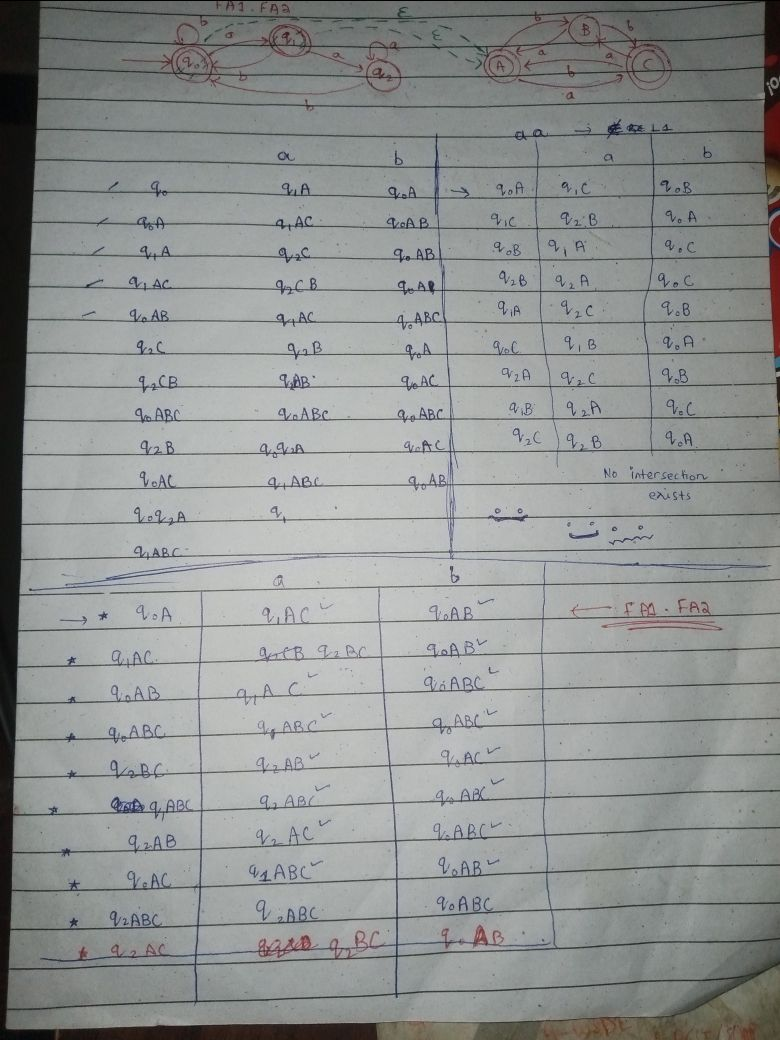 FA1. FA2
b
a
q0
q1
b
a
a
q2
b
ε
ε
A
b
a
B
b
a
C
b
a
a b
q0 q1A q0A
q0A q1AC q0AB
q1A q2C q0AB
q1AC q2CB
q0AB q1AC q0ABC
q2C q2B q0A
q2CB q2AB q0AC
q0ABC q0ABC q0ABC
q2B q0q2A q0AC
q0AC q1ABC q0AB
q0q2A q1
q1ABC
aa → L1
a b
→ q0A q1C q0B
q1C q2B q0A
q0B q1A q0C
q2B q2A q0C
q1A q2C q0B
q0C q1B q0A
q2A q2C q0B
q1B q2A q0C
q2C q2B q0A
No intersection
exists
a b
→ * q0A q1AC ✓ q0AB ✓ ← FA1. FA2
* q1AC q2BC q0AB ✓
* q0AB q1AC ✓ q0ABC ✓
* q0ABC q1ABC ✓ q0ABC ✓
* q2BC q2AB ✓ q0AC ✓
* q1ABC q2ABC ✓ q0ABC ✓
* q2AB q2AC ✓ q0ABC ✓
* q0AC q1ABC ✓ q0AB ✓
* q2ABC q2ABC q0ABC
* q2AC q2BC q0AB